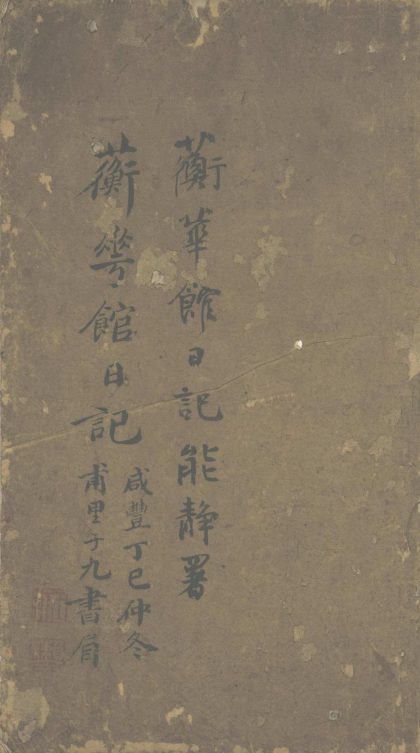 蘅華館日記能靜署
蘅花館日記
咸豐丁巳仲冬
甫里子九書眉